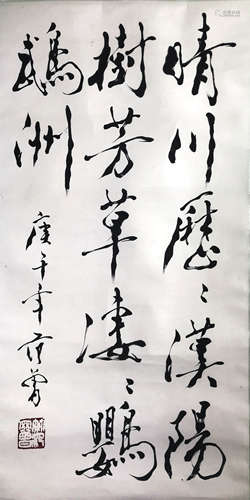 晴川歷〻漢陽
樹芳草凄〻鸚
鵡洲
庚午年范曾